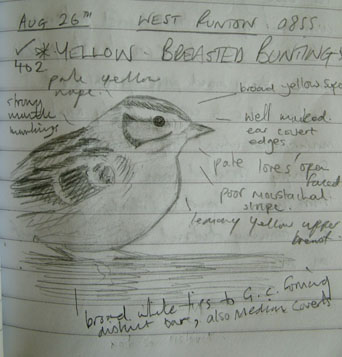 AUG 26TH WEST RUNTON 0855
✓ * YELLOW - BREASTED BUNTING
402
pale yellow
nape
broad yellow super
strong
mantle
markings
well marked
ear covert
edges
pale lores 'open
faced
poor moustachial
stripe
lemony yellow upper
breast
broad white tips to G.C. forming
distinct bar, also Median Coverts